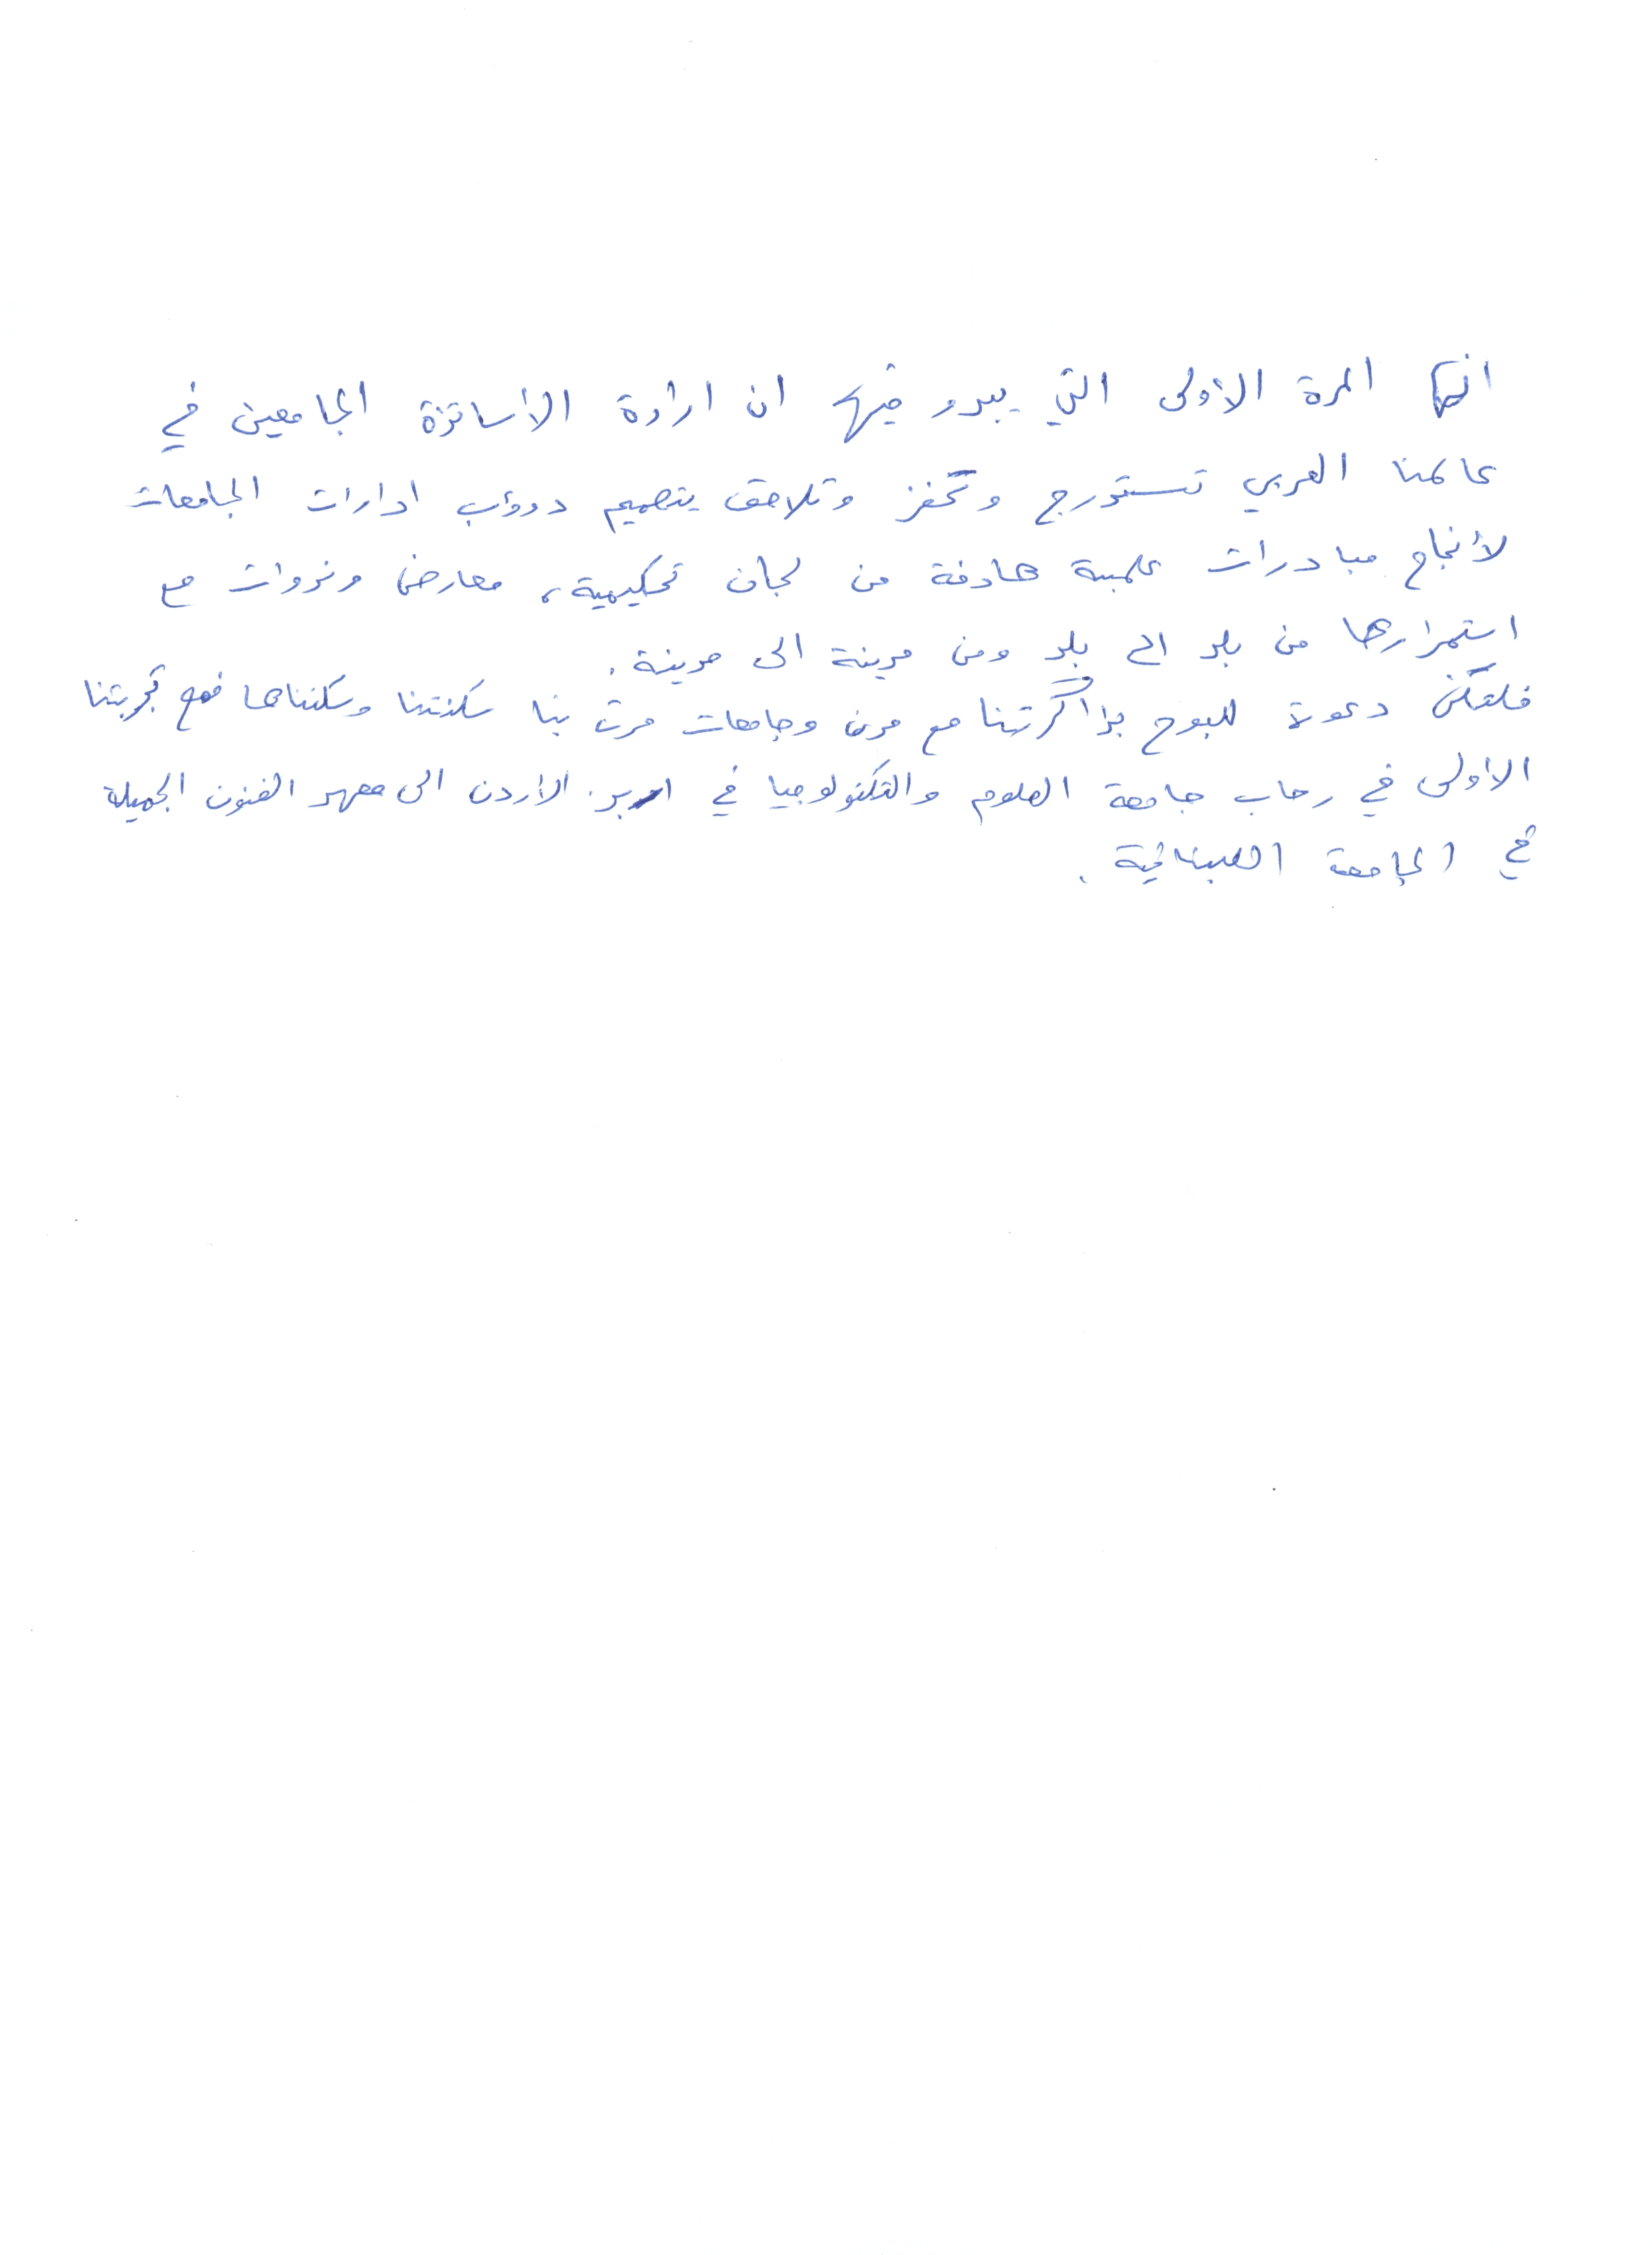 انها المرة الأولى التي يبدو فيها ان ارادة الأساتذة الجامعين في
عالمنا العربي تستدرج وتحفز وتلاحق بتصميم دوؤب ادارات الجامعات
لأنجاح مبادرات علمية هادفة من لجان تحكيمية، معارض وندوات مع
استمرارها من بلد الى بلد ومن مدينة الى مدينة.
فلتكن دعوة للبوح بذاكرتنا مع مدن وجامعات مرت بنا سكنتنا وسكنناها فمع تجربتنا
الأولى في رحاب جامعة العلوم والتكنولوجيا في اربد. الأردن الى معهد الفنون الجميلة
في الجامعة اللبنانية.